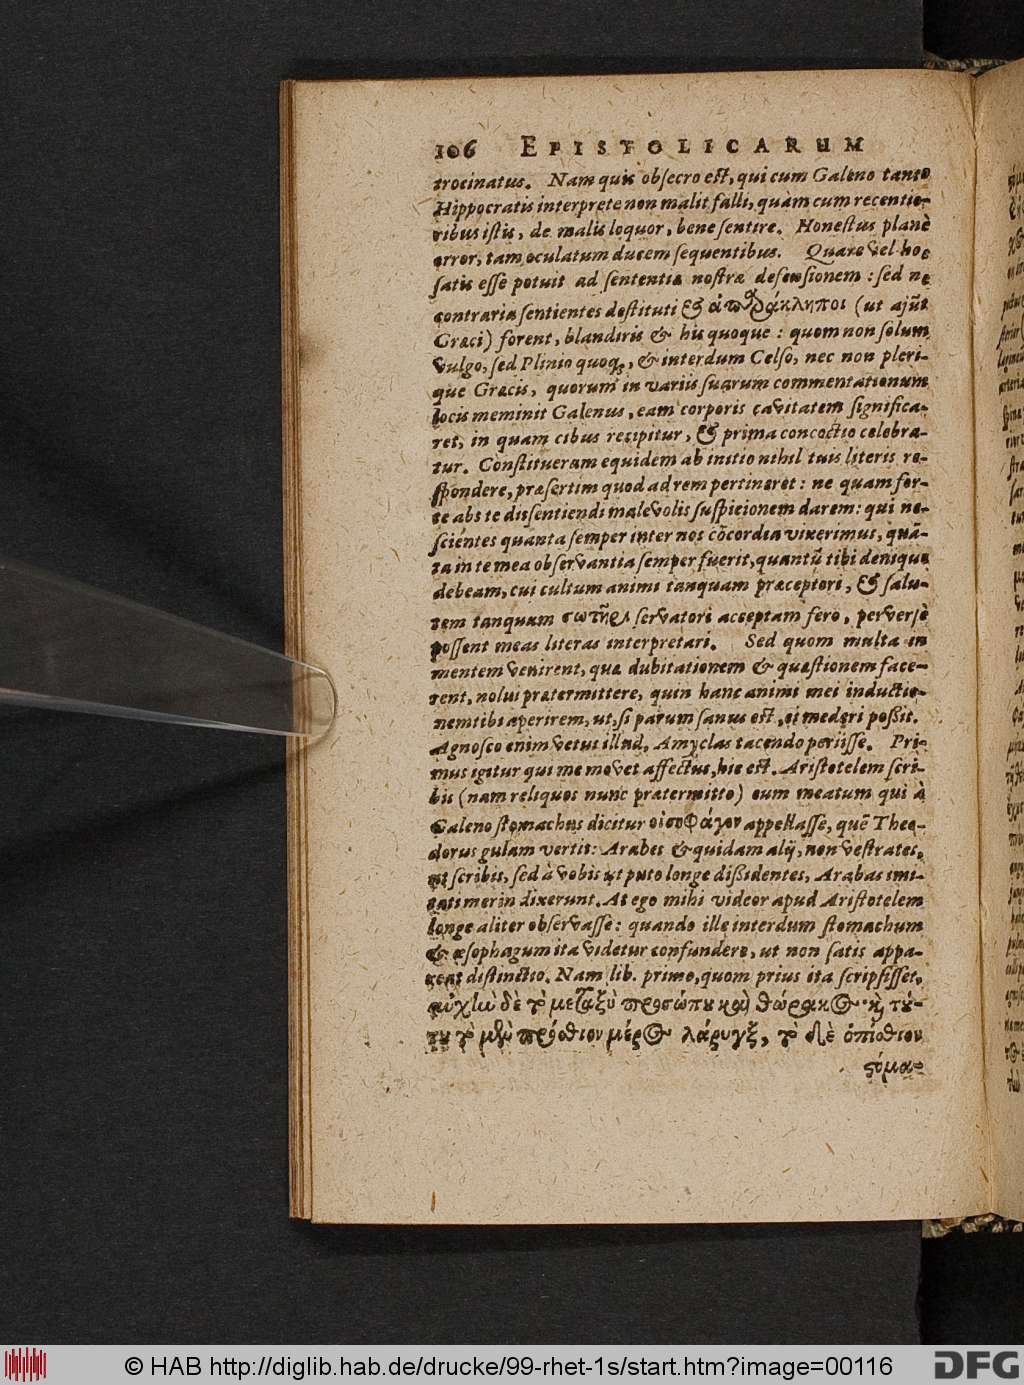 106 EPISTOLICARUM
trocinatus. Nam quis obsecro est, qui cum Galeno tanto
Hippocratis interprete non malit falli, quàm cum recentio-
ribus istis, de malis loquor, bene sentire. Honestus planè
error, tam oculatum ducem sequentibus. Quare vel hoc
satis esse potuit ad sententiæ nostræ defensionem: sed ne
contraria sentientes destituti & (ut ajũt
Græci) forent, blandiris & his quoque: quem non solum
vulgo, sed Plinio quoq;, & interdum Celso, nec non pleri-
que Græcis, quorum in variis suarum commentationum
locis meminit Galenus, eam corporis cavitatem significa-
ret, in quam cibus recipitur, & prima concoctio celebra-
tur. Constitueram equidem ab initio nihil tuis literis re-
spondere, præsertim quod ad rem pertineret: ne quam for-
te abs te dissentiendi malevolis suspicionem darem: qui ne-
scientes quanta semper inter nos cõcordia vixerimus, quã-
ta in te mea observantia semper fuerit, quantũ tibi denique
debeam, cui cultum animi tanquam præceptori, & salu-
tem tanquam σωτῆρι servatori acceptam fero, perversè
possent meas literas interpretari. Sed quom multa in
mentem venirent, quæ dubitationem & quæstionem face-
rent, nolui prætermittere, quin hanc animi mei inductio-
nem tibi aperirem, ut, si parum sanus est, ei mederi poßit.
Agnosco enim vetus illud, Amyclas tacendo periisse. Pri-
mus igitur qui me movet affectus, hic est. Aristotelem scri-
bis (nam reliquos nunc prætermitto) eum meatum qui à
Galeno stomachus dicitur οἰσοφάγον appellasse, quẽ Theo-
dorus gulam vertit: Arabes & quidam alij, non vestrates,
ut scribis, sed à vobis ut puto longe dißidentes, Arabas imi-
tati meri dixerunt. At ego mihi videor apud Aristotelem
longe aliter observasse: quando ille interdum stomachum
& œsophagum ita videtur confundere, ut non satis appa-
reat distinctio. Nam lib. primo, quom prius ita scripsisset,
αὐχὴν δὲ τὸ μεταξὺ προσώπου καὶ θώρακος· καὶ τού-
του τὸ μὲν πρόσθιον μέρος λάρυγξ, τὸ δὲ ὀπίσθιον
στόμα-
© HAB http://diglib.hab.de/drucke/99-rhet-1s/start.htm?image=00116
DFG